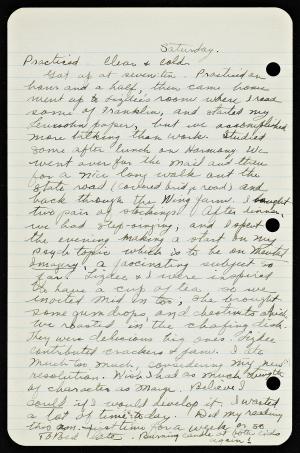 Saturday.
Practiced Clear & cold.
Got up at seven ten. Practised an
hour and a half, then came home
went up to Lizdee's room where I read
some of Franklin, and started my
paper, but we accomplished
more talking than work. Studied
some after lunch on Harmony. We
went over for the mail and then
for a nice long walk out the
State road (covered bridge road) and
back through the Wing farm. I bought
two pair of stockings. After dinner,
we had step-singing, and I spent
the evening making a start on my
psych topic which is to be on Mental
Imagery, a fascinating subject so
far. Lizdee & I were inspired
to have a cup of tea so we
invited Mid in too, she brought
some gum drops and chestnuts which
we roasted in the chafing dish.
They were delicious big ones. Lizdee
contributed crackers & jam. I ate
much too much, considering my new
resolution. Wish I had as much strength
of character as Marge. Believe I
could if I would develop it. I wasted
a lot of time to-day. Did my reading
two first time for a week or so
To Bed late. Burning candle at both ends
again!